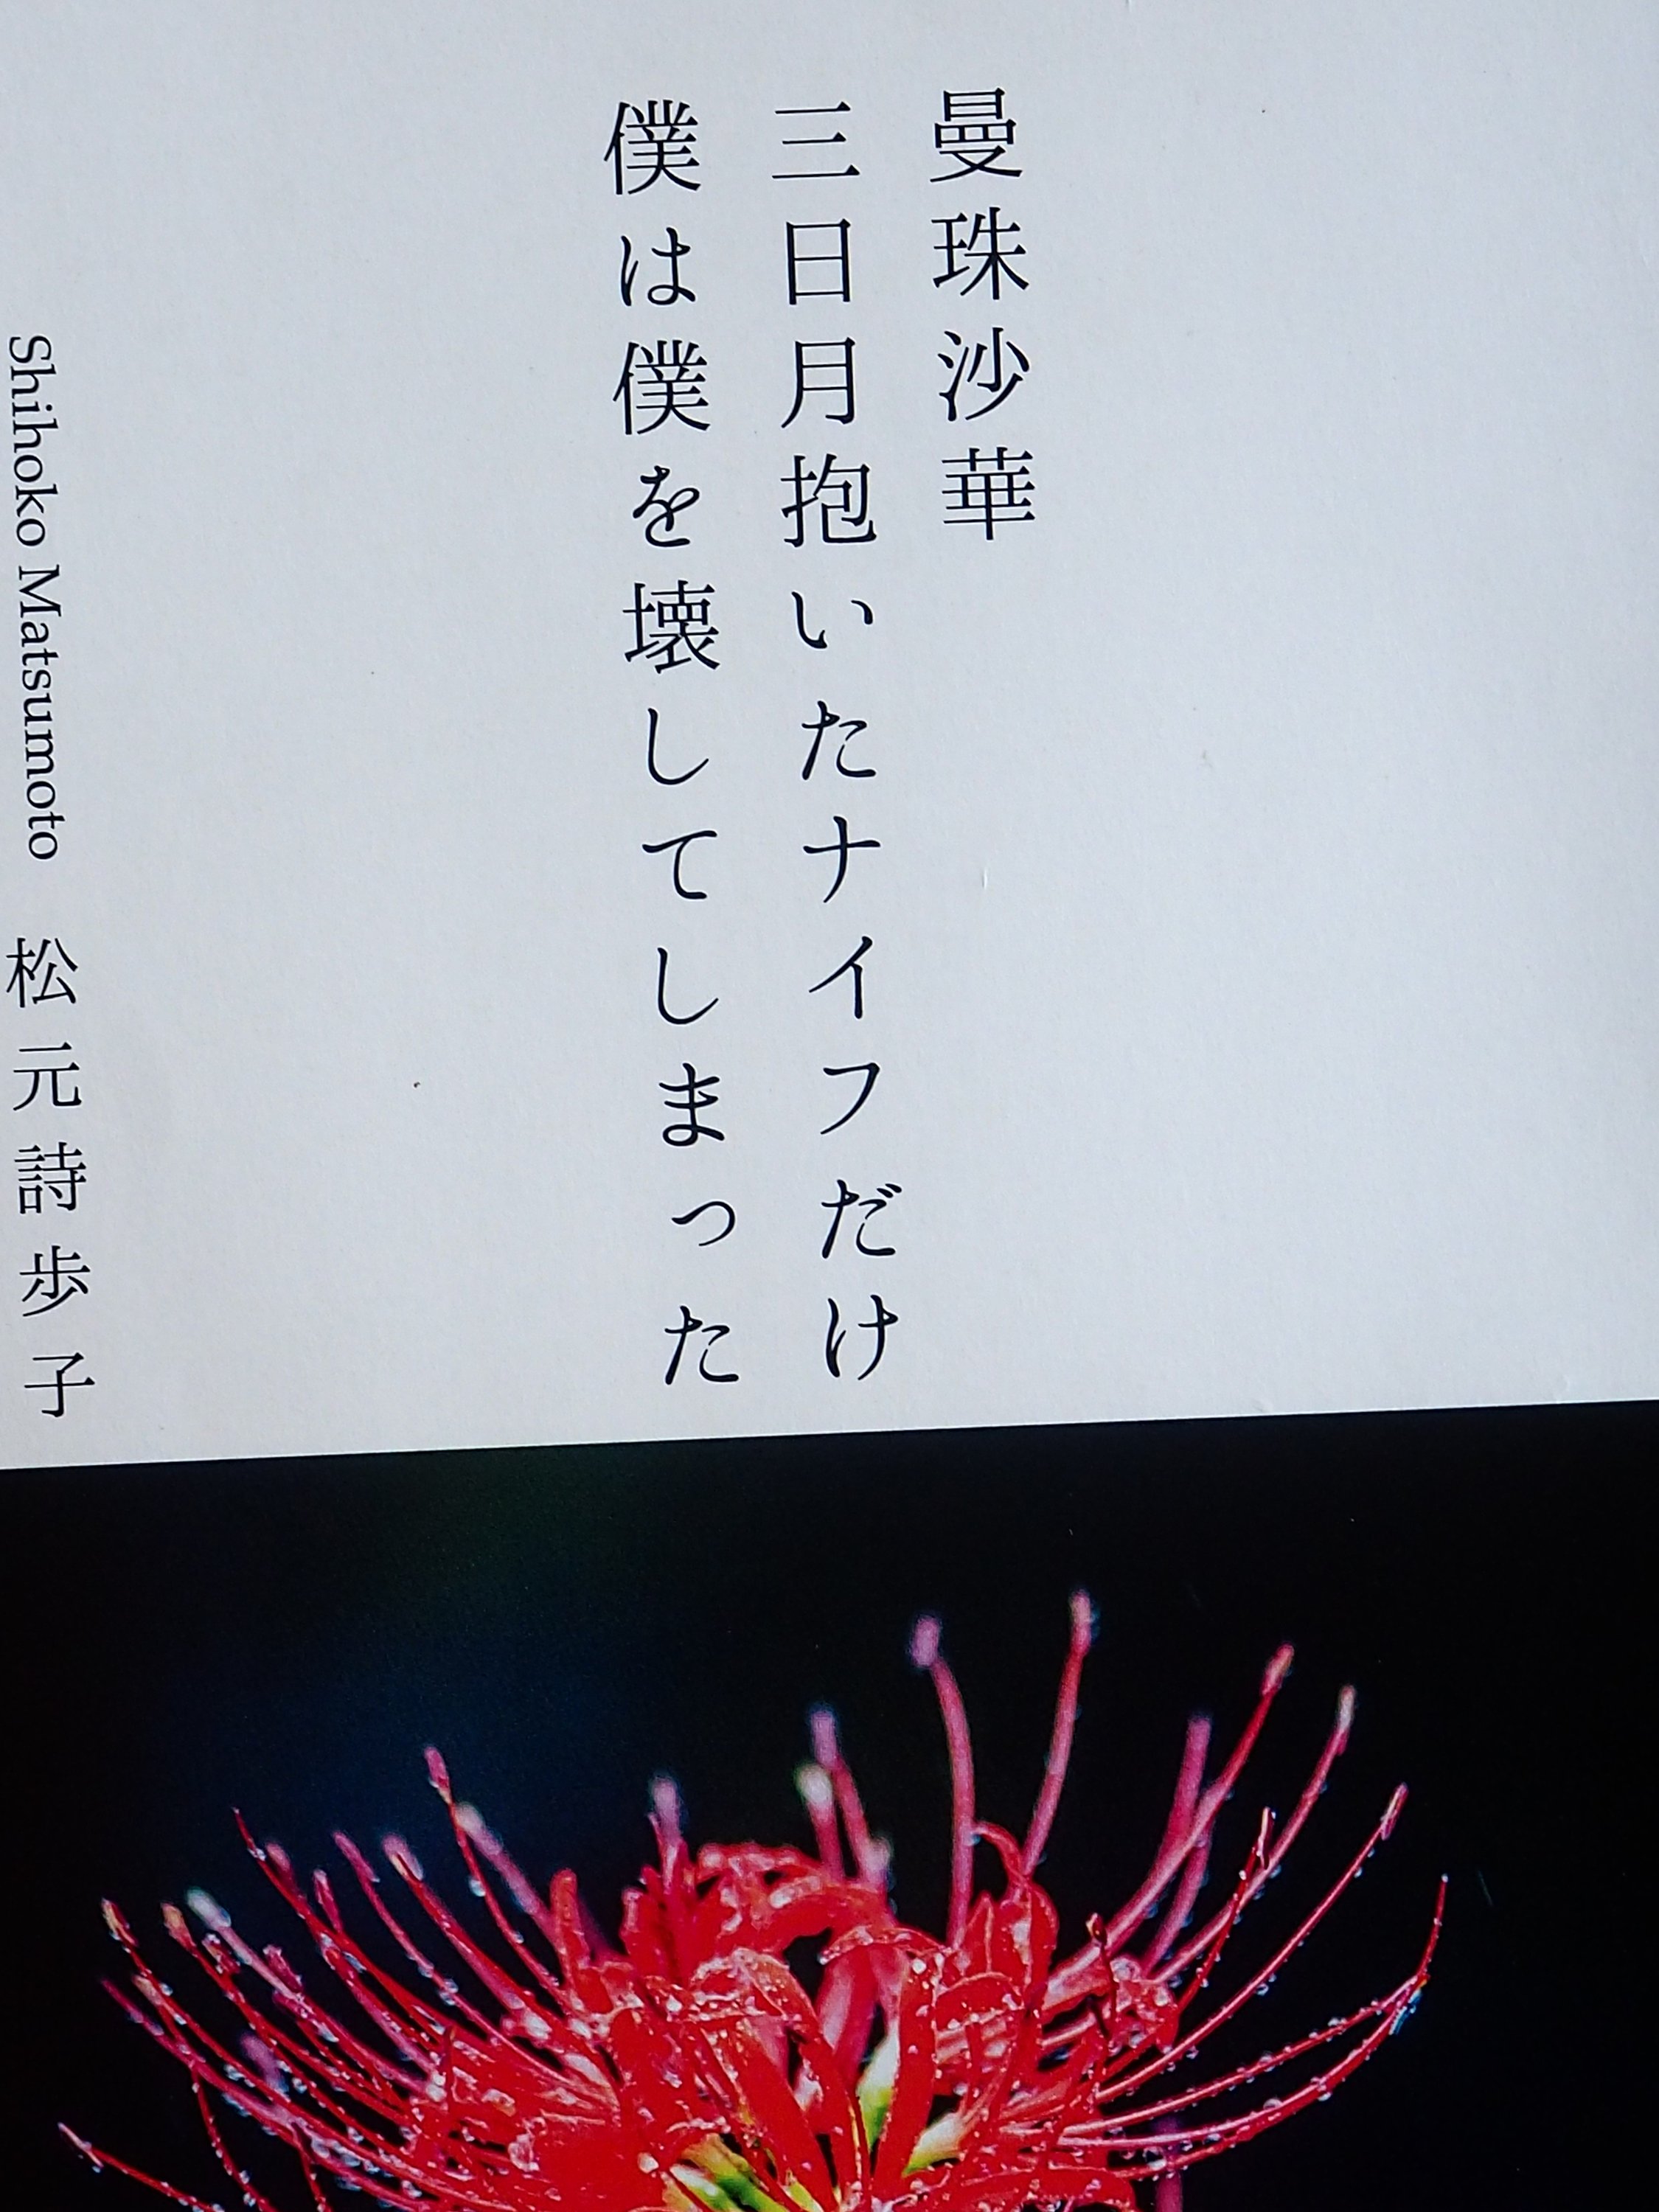 曼珠沙華
三日月抱いたナイフだけ
僕は僕を壊してしまった
Shihoko Matsumoto 松元詩歩子